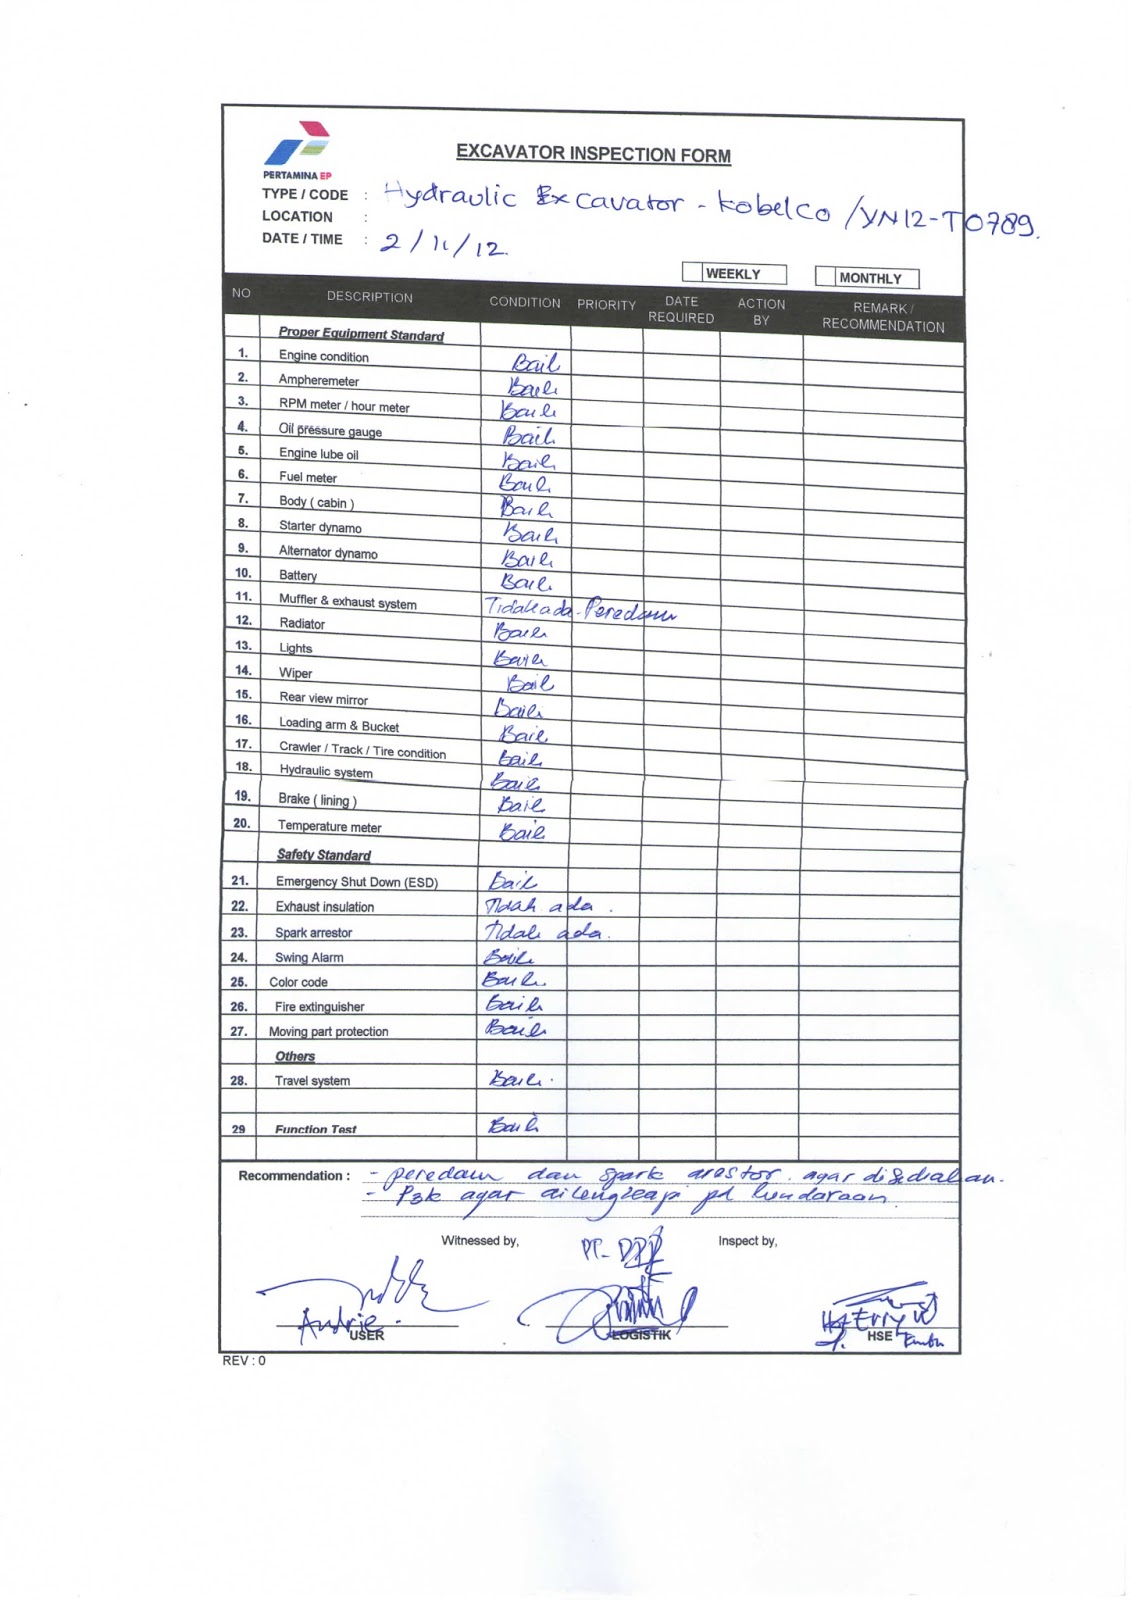 PERTAMINA EP
EXCAVATOR INSPECTION FORM
TYPE / CODE : Hydraulic Excavator - Kobelco / YN12-T0789.
LOCATION :
DATE / TIME : 2/11/12.
WEEKLY MONTHLY
NO DESCRIPTION CONDITION PRIORITY DATE REQUIRED ACTION BY REMARK / RECOMMENDATION
Proper Equipment Standard
1. Engine condition Baik
2. Ampheremeter Baik
3. RPM meter / hour meter Baik
4. Oil pressure gauge Baik
5. Engine lube oil Baik
6. Fuel meter Baik
7. Body ( cabin ) Baik
8. Starter dynamo Baik
9. Alternator dynamo Baik
10. Battery Baik
11. Muffler & exhaust system Tidak ada Peredam
12. Radiator Baik
13. Lights Baik
14. Wiper Baik
15. Rear view mirror Baik
16. Loading arm & Bucket Baik
17. Crawler / Track / Tire condition Baik
18. Hydraulic system Baik
19. Brake ( lining ) Baik
20. Temperature meter Baik
Safety Standard
21. Emergency Shut Down (ESD) Baik
22. Exhaust insulation Tidak ada .
23. Spark arrestor Tidak ada.
24. Swing Alarm Baik
25. Color code Baik.
26. Fire extinguisher Baik
27. Moving part protection Baik
Others
28. Travel system Baik.
29 Function Test Baik
Recommendation : - peredam dan spark arestor. agar disediakan.
- P3k agar dilengkapi pd kendaraan
Witnessed by, PT- Inspect by,
Andrie. Erry
USER LOGISTIK HSE
REV : 0